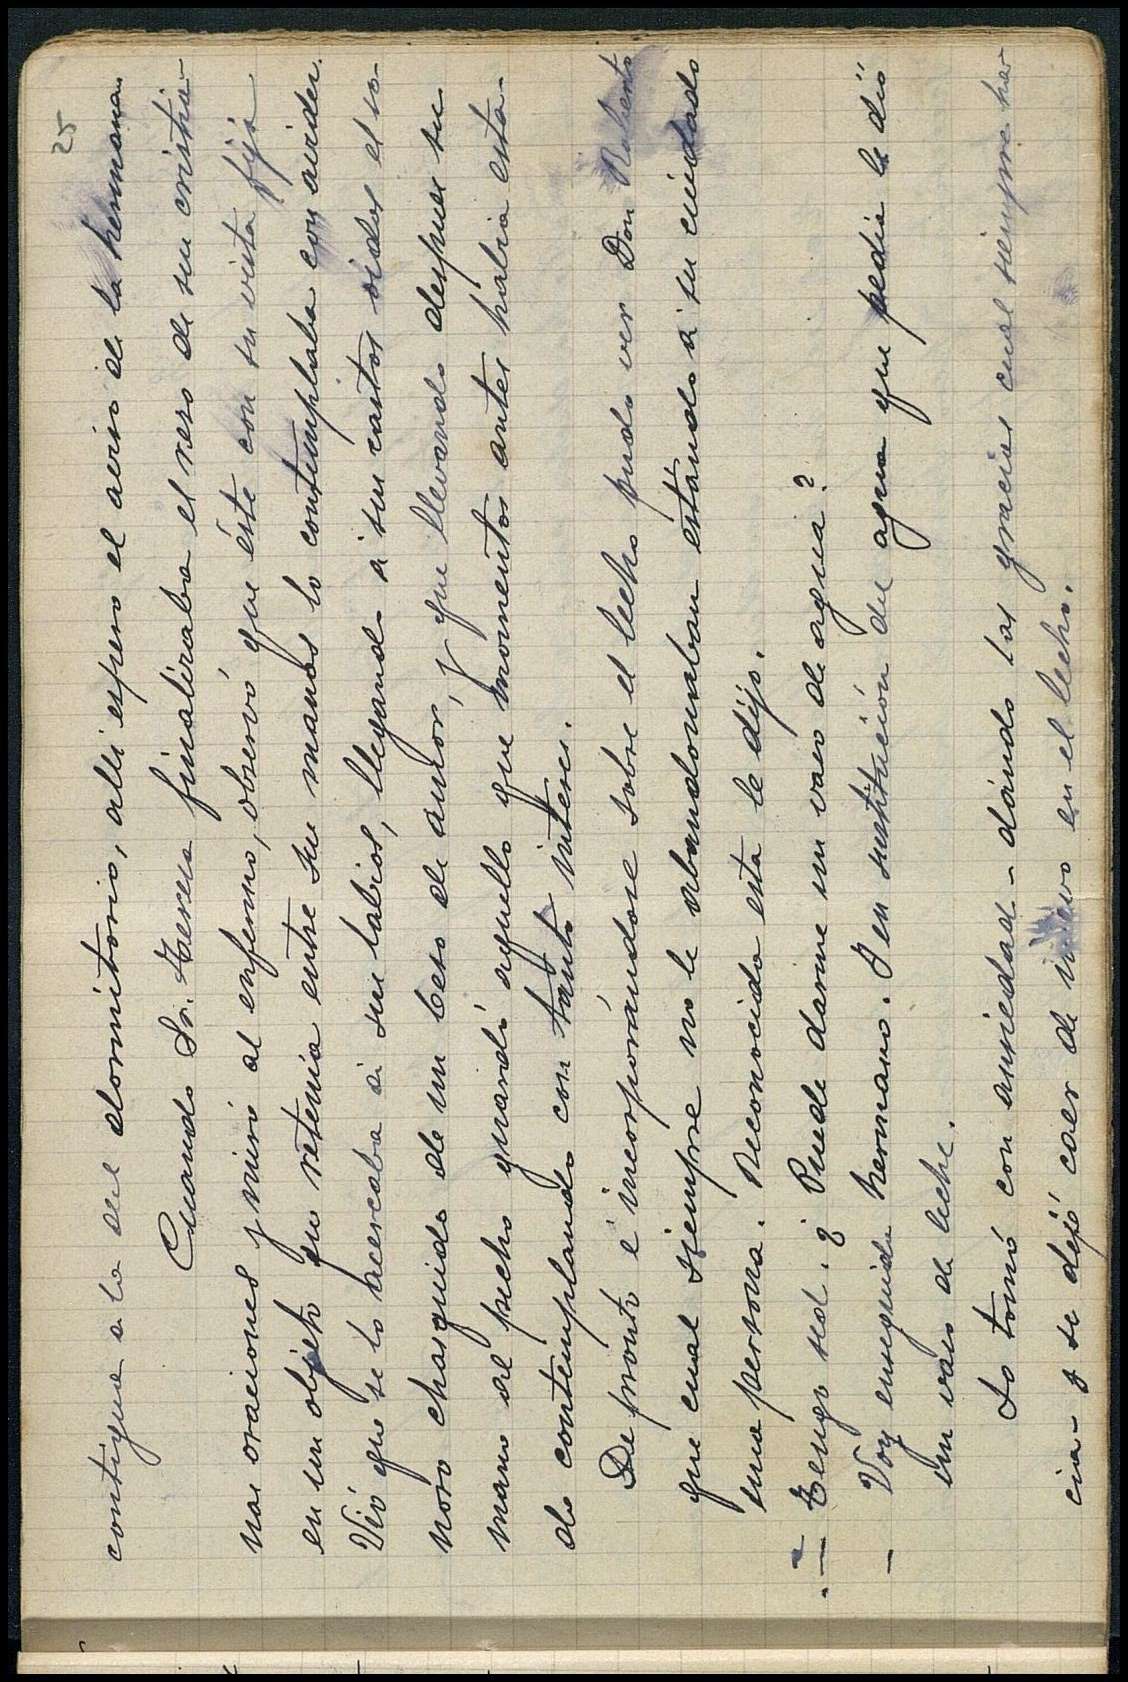 25
contigua a la del dormitorio, alli espero el aviso de la hermana.
Cuando Sr. Teresa finalizaba el rezo de su cristia-
nas oraciones y miró al enfermo, observó que éste con su vista fija
en un objeto que retenia entre sus manos lo contemplaba con avidez.
Vió que se lo acercaba a sus labios, llegando a sus castos oidos el so-
noro chasquido de un beso de amor, y que llevando despues su
mano al pecho guardó aquello que momentos antes habia esta-
do contemplando con tanto interes.
De pronto e incorporándose sobre el lecho pudo ver Don Roberto
que cual siempre no le abandonaban estando a su cuidado
una persona. Reconocida esta le dijo.
— Tengo sed. ¿ Puede darme un vaso de agua?
— Voy enseguida hermano. Y en sustitución del agua que pedia le dió
un vaso de leche.
Lo tomó con ansiedad - dándo las gracias cual siempre ha-
cia - y se dejó caer de nuevo en el lecho.